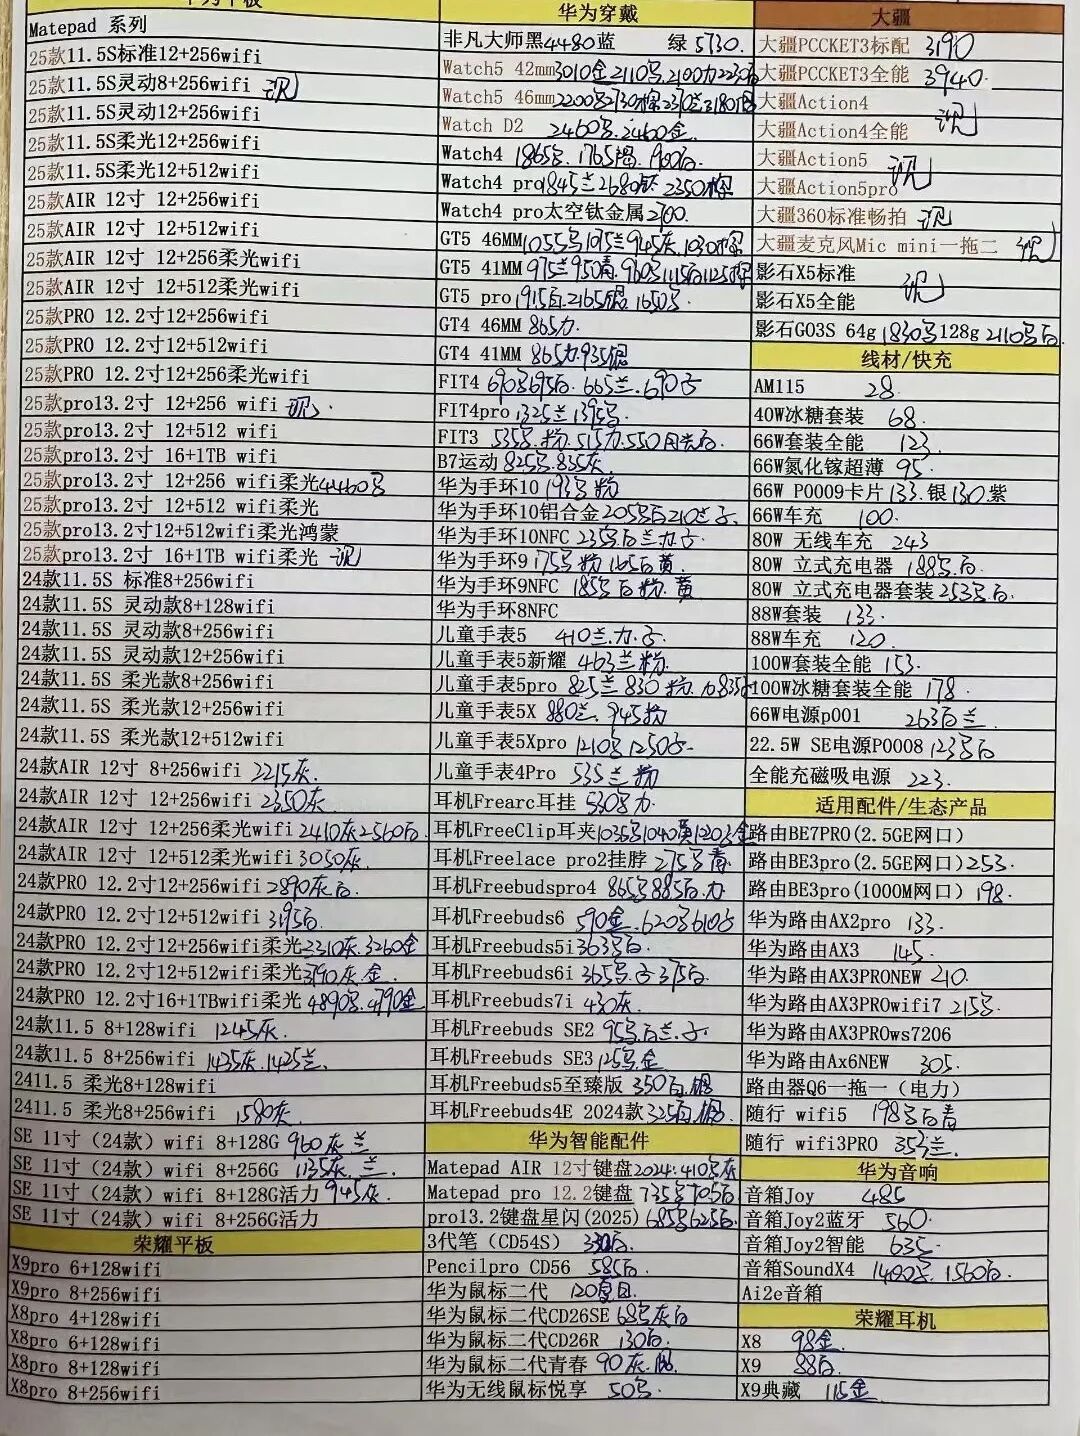 华为平板
Matepad 系列
25款11.5S标准12+256wifi
25款11.5S灵动8+256wifi 讯
25款11.5S灵动12+256wifi
25款11.5S柔光12+256wifi
25款11.5S柔光12+512wifi
25款AIR 12寸 12+256wifi
25款AIR 12寸 12+512wifi
25款AIR 12寸 12+256柔光wifi
25款AIR 12寸 12+512柔光wifi
25款PRO 12.2寸12+256wifi
25款PRO 12.2寸12+512wifi
25款PRO 12.2寸12+256柔光wifi
25款pro13.2寸 12+256 wifi 讯.
25款pro13.2寸 12+512 wifi
25款pro13.2寸 16+1TB wifi
25款pro13.2寸 12+256 wifi柔光4440号
25款pro13.2寸 12+512 wifi柔光
25款pro13.2寸12+512wifi柔光鸿蒙
25款pro13.2寸 16+1TB wifi柔光 讯
24款11.5S 标准8+256wifi
24款11.5S 灵动款8+128wifi
24款11.5S 灵动款8+256wifi
24款11.5S 灵动款12+256wifi
24款11.5S 柔光款8+256wifi
24款11.5S 柔光款12+256wifi
24款11.5S 柔光款12+512wifi
24款AIR 12寸 8+256wifi 2215灰.
24款AIR 12寸 12+256wifi 2350灰
24款AIR 12寸 12+256柔光wifi 2410灰2560白.
24款AIR 12寸 12+512柔光wifi 3050灰.
24款PRO 12.2寸12+256wifi 2890灰白.
24款PRO 12.2寸12+512wifi 3195白.
24款PRO 12.2寸12+256wifi柔光 灰.3260金
24款PRO 12.2寸12+512wifi柔光3790灰.金.
24款PRO 12.2寸16+1TBwifi柔光 4890号.4790金
24款11.5 8+128wifi 1245灰.
24款11.5 8+256wifi 1435灰.1425兰.
2411.5 柔光8+128wifi
2411.5 柔光8+256wifi 1580灰
SE 11寸 (24款) wifi 8+128G 960灰兰
SE 11寸 (24款) wifi 8+256G 1135灰.兰.
SE 11寸 (24款) wifi 8+128G活力 945灰.
SE 11寸 (24款) wifi 8+256G活力
荣耀平板
X9pro 6+128wifi
X9pro 8+256wifi
X8pro 4+128wifi
X8pro 6+128wifi
X8pro 8+128wifi
X8pro 8+256wifi
华为穿戴
非凡大师黑4480蓝 绿 5730.
Watch5 42mm3010金2110号.2100力2230白
Watch5 46mm2200号2730棕2370兰3180
Watch D2 2460号.2460金.
Watch4 1865号.1765褐.1900白.
Watch4 pro1845兰2680钛.2350棕
Watch4 pro太空钛金属2700.
GT5 46MM1055号1075兰945灰.1030棕
GT5 41MM 975兰950青.960号1115白1125棕
GT5 pro1915白.2165银.1650号.
GT4 46MM 865力.
GT4 41MM 865力.935银
FIT4 690号695白.665兰.690子
FIT4pro 1325兰1395号.
FIT3 535号.粉.515力.550月光白.
B7运动 825号.835灰.
华为手环10 193号粉
华为手环10铝合金 205号白210兰子.
华为手环10NFC 235号白兰力子
华为手环9 175号粉165白黄.
华为手环9NFC 185号白粉.黄
华为手环8NFC
儿童手表5 410兰.力.子
儿童手表5新耀 463兰粉.
儿童手表5pro 825兰830粉.力835白
儿童手表5X 880兰.945粉
儿童手表5Xpro 1210号1250子.
儿童手表4Pro 535兰粉
耳机Frearc耳挂 530号力.
耳机FreeClip耳夹1035号1040黄1120金
耳机Freelace pro2挂脖 275号青
耳机Freebudspro4 865号885白.力
耳机Freebuds6 590金.620号610白
耳机Freebuds5i 363号白.
耳机Freebuds6i 365号.子375白.
耳机Freebuds7i 430灰.
耳机Freebuds SE2 95号白兰.子.
耳机Freebuds SE3 125号.金
耳机Freebuds5至臻版 350白.银
耳机Freebuds4E 2024款325白.银.
华为智能配件
Matepad AIR 12寸键盘2024.410号灰
Matepad pro 12.2键盘 735号705白
pro13.2键盘星闪(2025) 685号625白.
3代笔 (CD54S) 白.
Pencilpro CD56 585白
华为鼠标二代
华为鼠标二代CD26SE 68号灰白
华为鼠标二代CD26R 130白.
华为鼠标二代青春 90灰.
华为无线鼠标悦享 50号.
大疆
大疆PCCKET3标配 3190
大疆PCCKET3全能 3940.
大疆Action4
大疆Action4全能 讯
大疆Action5
大疆Action5pro 讯
大疆360标准畅拍 讯
大疆麦克风Mic mini一拖二 讯
影石X5标准
影石X5全能 讯
影石GO3S 64g 1830号128g 2110号白.
线材/快充
AM115 28.
40W冰糖套装 68.
66W套装全能 123.
66W氮化镓超薄 95.
66W P0009卡片 133.银130.紫
66W车充 100.
80W 无线车充 243
80W 立式充电器 188号白.
80W 立式充电器套装253号白.
88W套装 133.
88W车充 120.
100W套装全能 153.
100W冰糖套装全能 178.
66W电源p001 263白兰.
22.5W SE电源P0008 123号白
全能充磁吸电源 223.
适用配件/生态产品
路由BE7PRO(2.5GE网口)
路由BE3pro(2.5GE网口)253.
路由BE3pro(1000M网口) 198.
华为路由AX2pro 133.
华为路由AX3 145.
华为路由AX3PRONEW 210.
华为路由AX3PROwifi7 215号.
华为路由AX3PROws7206
华为路由Ax6NEW 305.
路由器Q6一拖一 (电力)
随行 wifi5 198号白青
随行 wifi3PRO 353号兰.
华为音响
音箱Joy 485
音箱Joy2蓝牙 560.
音箱Joy2智能 635.
音箱SoundX4 1400号.1560白.
Ai2e音箱
荣耀耳机
X8 98金.
X9 88白.
X9典藏 115金.